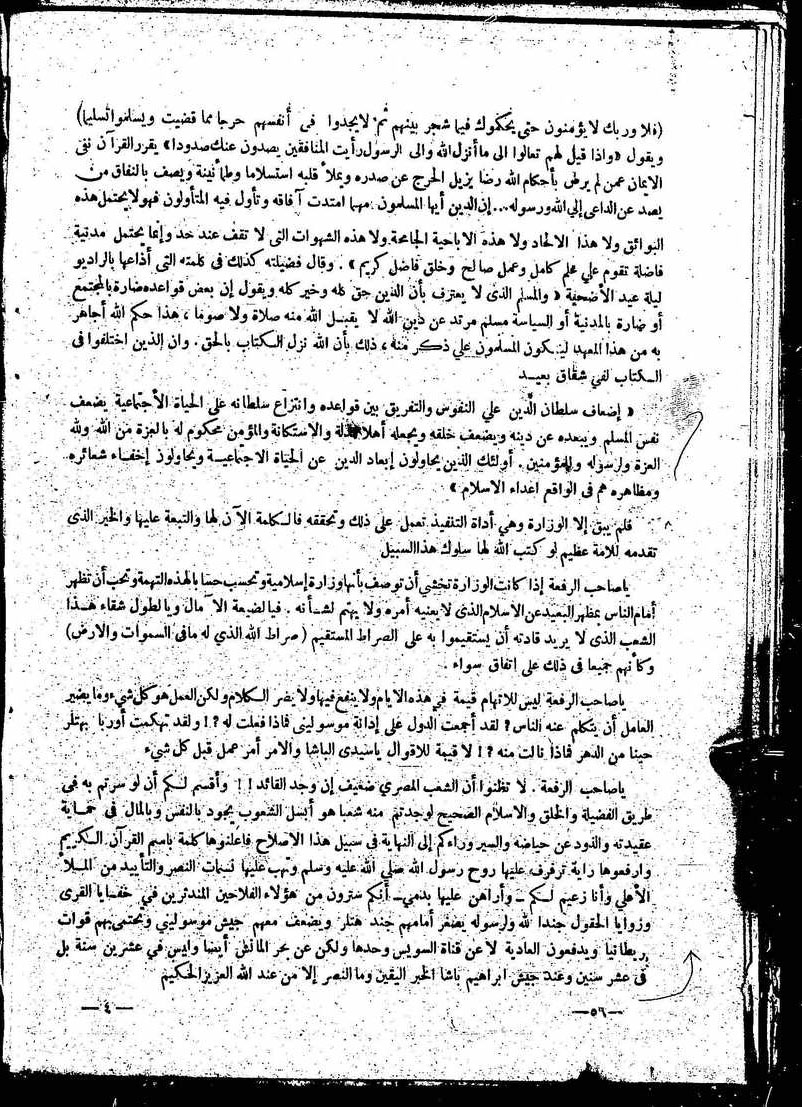 (فلا وربك لا يؤمنون حتى يحكموك فيما شجر بينهم ثم لايجدوا فى أنفسهم حرجا مما قضيت ويسلموا تسليما)
ويقول «واذا قيل لهم تعالوا الى ما أنزل الله والى الرسول رأيت المنافقين يصدون عنك صدودا» يقرر القرآن نفى
الايمان عمن لم يرض بأحكام الله رضا يزيل الحرج عن صدره ويملأ قلبه استسلاما وطمأنينة ويصف بالنفاق من
يصد عن الداعى إلى الله ورسوله... إن الدين أيها المسلمون مهما امتدت آفاقه وتأول فيه المتأولون فهو لا يحتمل هذه
البوائق ولا هذا الالحاد ولا هذه الاباحية الجامحة ولا هذه الشهوات التى لا تقف عند حد وإنما يحتمل مدنية
فاضلة تقوم علي علم كامل وعمل صالح وخلق فاضل كريم» . وقال فضيلته كذلك فى كلمته التى أذاعها بالراديو
ليلة عيد الأضحية « والمسلم الذى لا يعترف بأن الدين حق كله وخير كله ويقول إن بعض قواعده ضارة بالمجتمع
أو ضارة بالمدنية أو السياسة مسلم مرتد عن دين الله لا يقبل الله منه صلاة ولا صوما ، هذا حكم الله أجاهر
به من هذا المعهد ليكون المسلمون علي ذكر منه ، ذلك بأن الله نزل الكتاب بالحق. وان الذين اختلفوا فى
الكتاب لفي شقاق بعيد
« إضعاف سلطان الدين علي النفوس والتفريق بين قواعده وانتزاع سلطانه على الحياة الأجتماعية يضعف
نفس المسلم ويبعده عن دينه ويضعف خلقه ويجعله أهلا للذلة والاستكانة والمؤمن محكوم له بالعزة من الله ولله
العزة ولرسوله وللمؤمنين . أولئك الذين يحاولون إبعاد الدين عن الحياة الاجتماعية ويحاولون إخفاء شعائره
ومظاهره هم فى الواقع اعداء الاسلام »
فلم يبق إلا الوزارة وهي أداة التنفيذ تعمل على ذلك وتحققه فالكلمة الآن لها والتبعة عليها والخير الذى
تقدمه للأمة عظيم لو كتب الله لها سلوك هذا السبيل
ياصاحب الرفعة إذا كانت الوزارة تخشي أن توصف بأنها وزارة إسلامية وتحسب حسابا لهذه التهمة وتحب أن تظهر
أمام الناس بمظهر البعيد عن الاسلام الذى لا يعنيه أمره ولا يهتم لشأنه . فيا لضيعة الآمال ويا لطول شقاء هذا
الشعب الذى لا يريد قادته أن يستقيموا به على الصراط المستقيم ( صراط الله الذي له مافى السموات والارض)
وكأنهم جميعا فى ذلك على اتفاق سواء .
ياصاحب الرفعة ليس للاتهام قيمة فى هذه الايام ولا ينفع فيها ولا يضر الكلام ولكن العمل هو كل شيء وما يضير
العامل أن يتكلم عنه الناس ? لقد أجمعت الدول على إدانة موسولينى فماذا فعلت له ?! ولقد تهكمت أوربا بهتلر
حينا من الدهر فماذا نالت منه ?! لا قيمة للاقوال ياسيدى الباشا والامر أمر عمل قبل كل شيء
ياصاحب الرفعة . لا تظنوا أن الشعب المصري ضعيف إن وجد القائد !! وأقسم لكم أن لو سرتم به فى
طريق الفضيلة والخلق والاسلام الصحيح لوجدتم منه شعبا هو أبسل الشعوب يجود بالنفس وبالمال فى حماية
عقيدته والذود عن حياضه والسير وراءكم إلى النهاية فى سبيل هذا الاصلاح فاعلنوها كلمة باسم القرآن الكريم
وارفعوها راية ترفرف عليها روح رسول الله صلي الله عليه وسلم وتهب عليها نسمات النصر والتأييد من الملأ
الأعلي وأنا زعيم لكم - وأراهن عليها بدمي - أنكم سترون من هؤلاء الفلاحين المندثرين في خفايا القرى
وزوايا الحقول جندا لله ولرسوله يصغر أمامهم جند هتلر ويضعف معهم جيش موسوليني ويحتمى بهم قوات
بريطانيا ويدفعون العادية لا عن قناة السويس وحدها ولكن عن بحر المانش أيضا وليس في عشرين سنة بل
فى عشر سنين وعند جيش ابراهيم باشا الخبر اليقين وما النصر إلا من عند الله العزيز الحكيم
—٥٦— — ٤ —